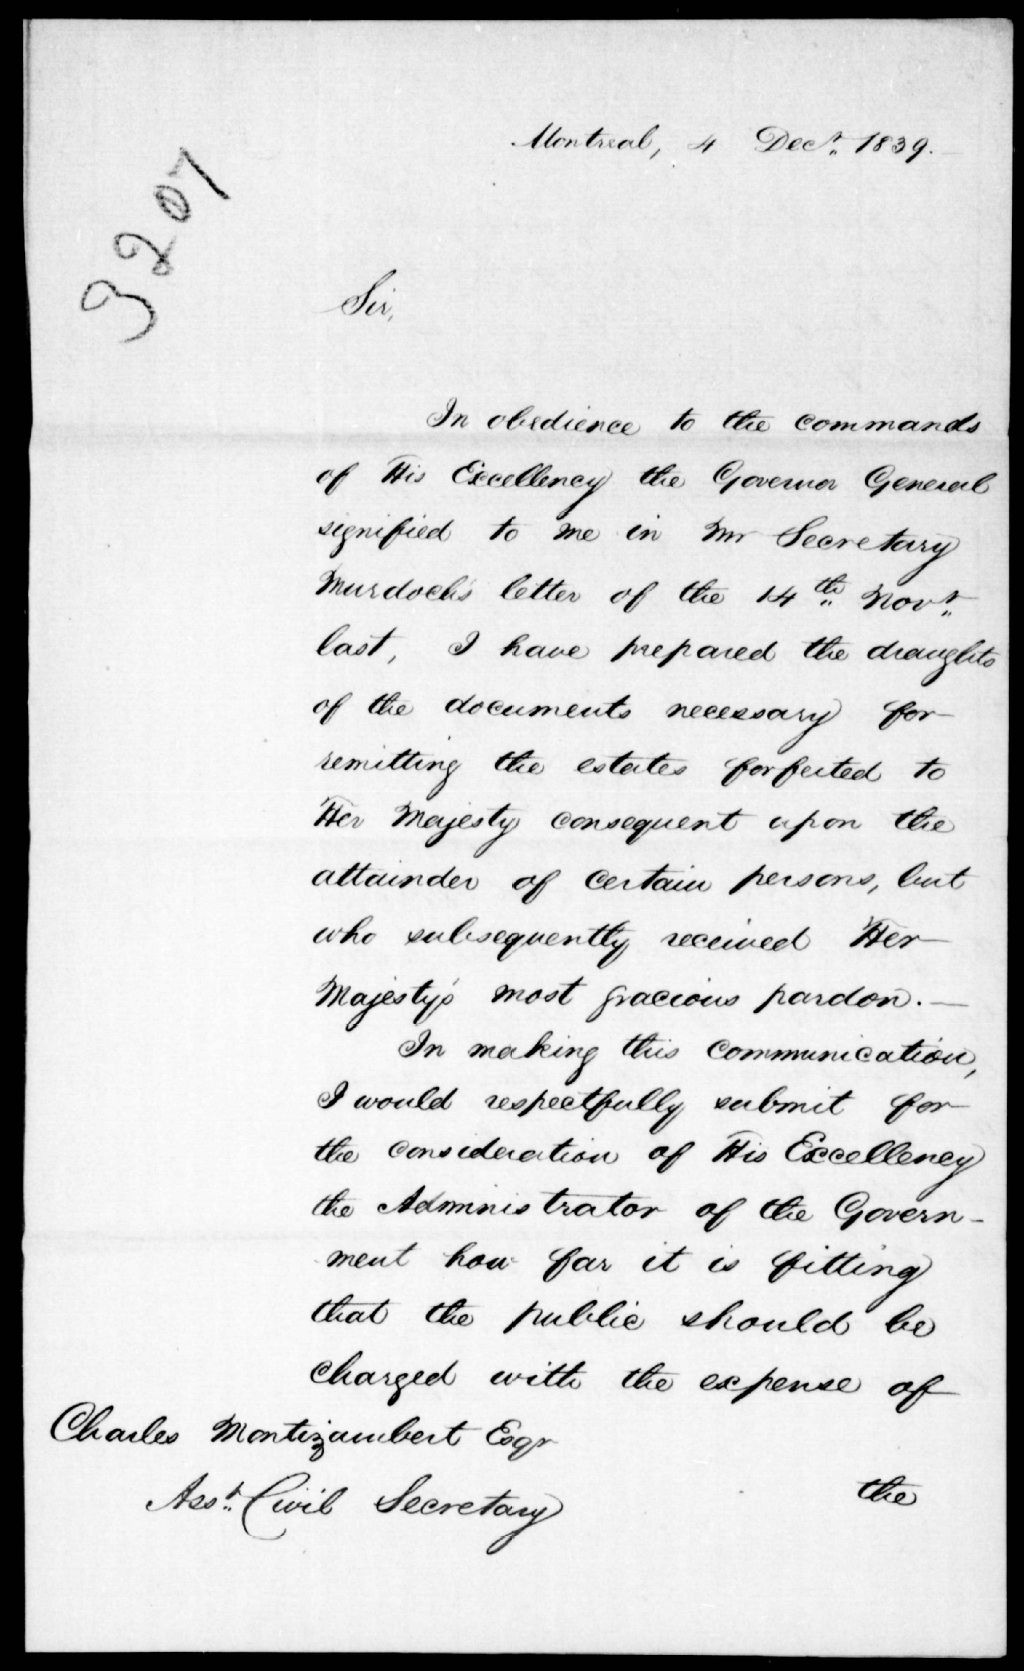 Montreal, 4 Decr. 1839.
3207
Sir,
In obedience to the commands
of His Excellency the Governor General
signified to me in Mr Secretary
Murdoch's letter of the 14th Novr.
last, I have prepared the draughts
of the documents necessary for
remitting the estates forfeited to
Her Majesty consequent upon the
attainder of certain persons, but
who subsequently received Her
Majesty's most gracious pardon. —
In making this communication,
I would respectfully submit for
the consideration of His Excellency
the Administrator of the Govern-
ment how far it is fitting
that the public should be
charged with the expense of
Charles Montizambert Esqr
Asst. Civil Secretary
the